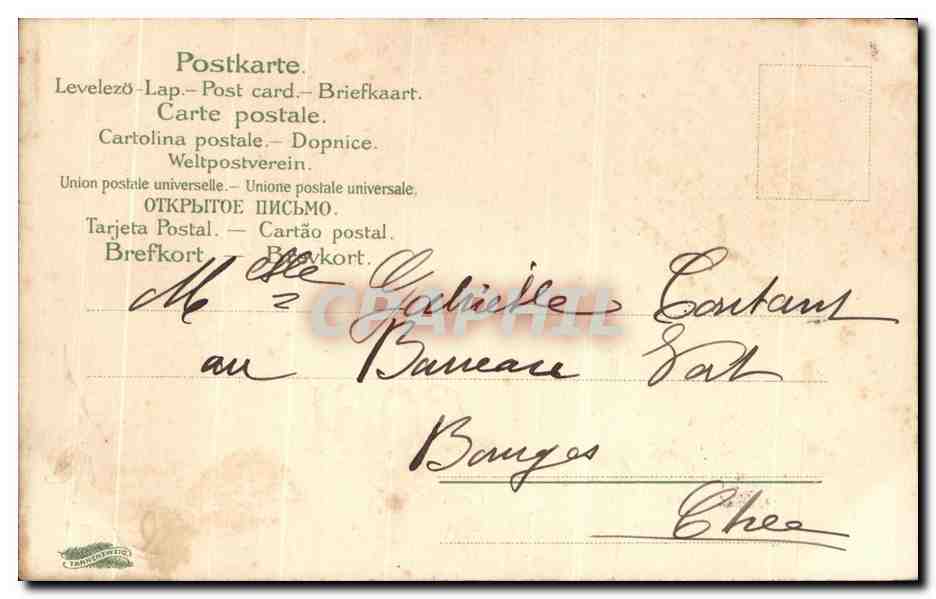 Postkarte.
Levelező-Lap.– Post card.– Briefkaart.
Carte postale.
Cartolina postale.– Dopnice.
Weltpostverein.
Union postale universelle.– Unione postale universale.
ОТКРЫТОЕ ПИСЬМО.
Tarjeta Postal. — Cartão postal.
Brefkort — Brevkort.
Melle Gabrielle
CPAPHIL
au
Bourges
Cher
TANNENZWEIG